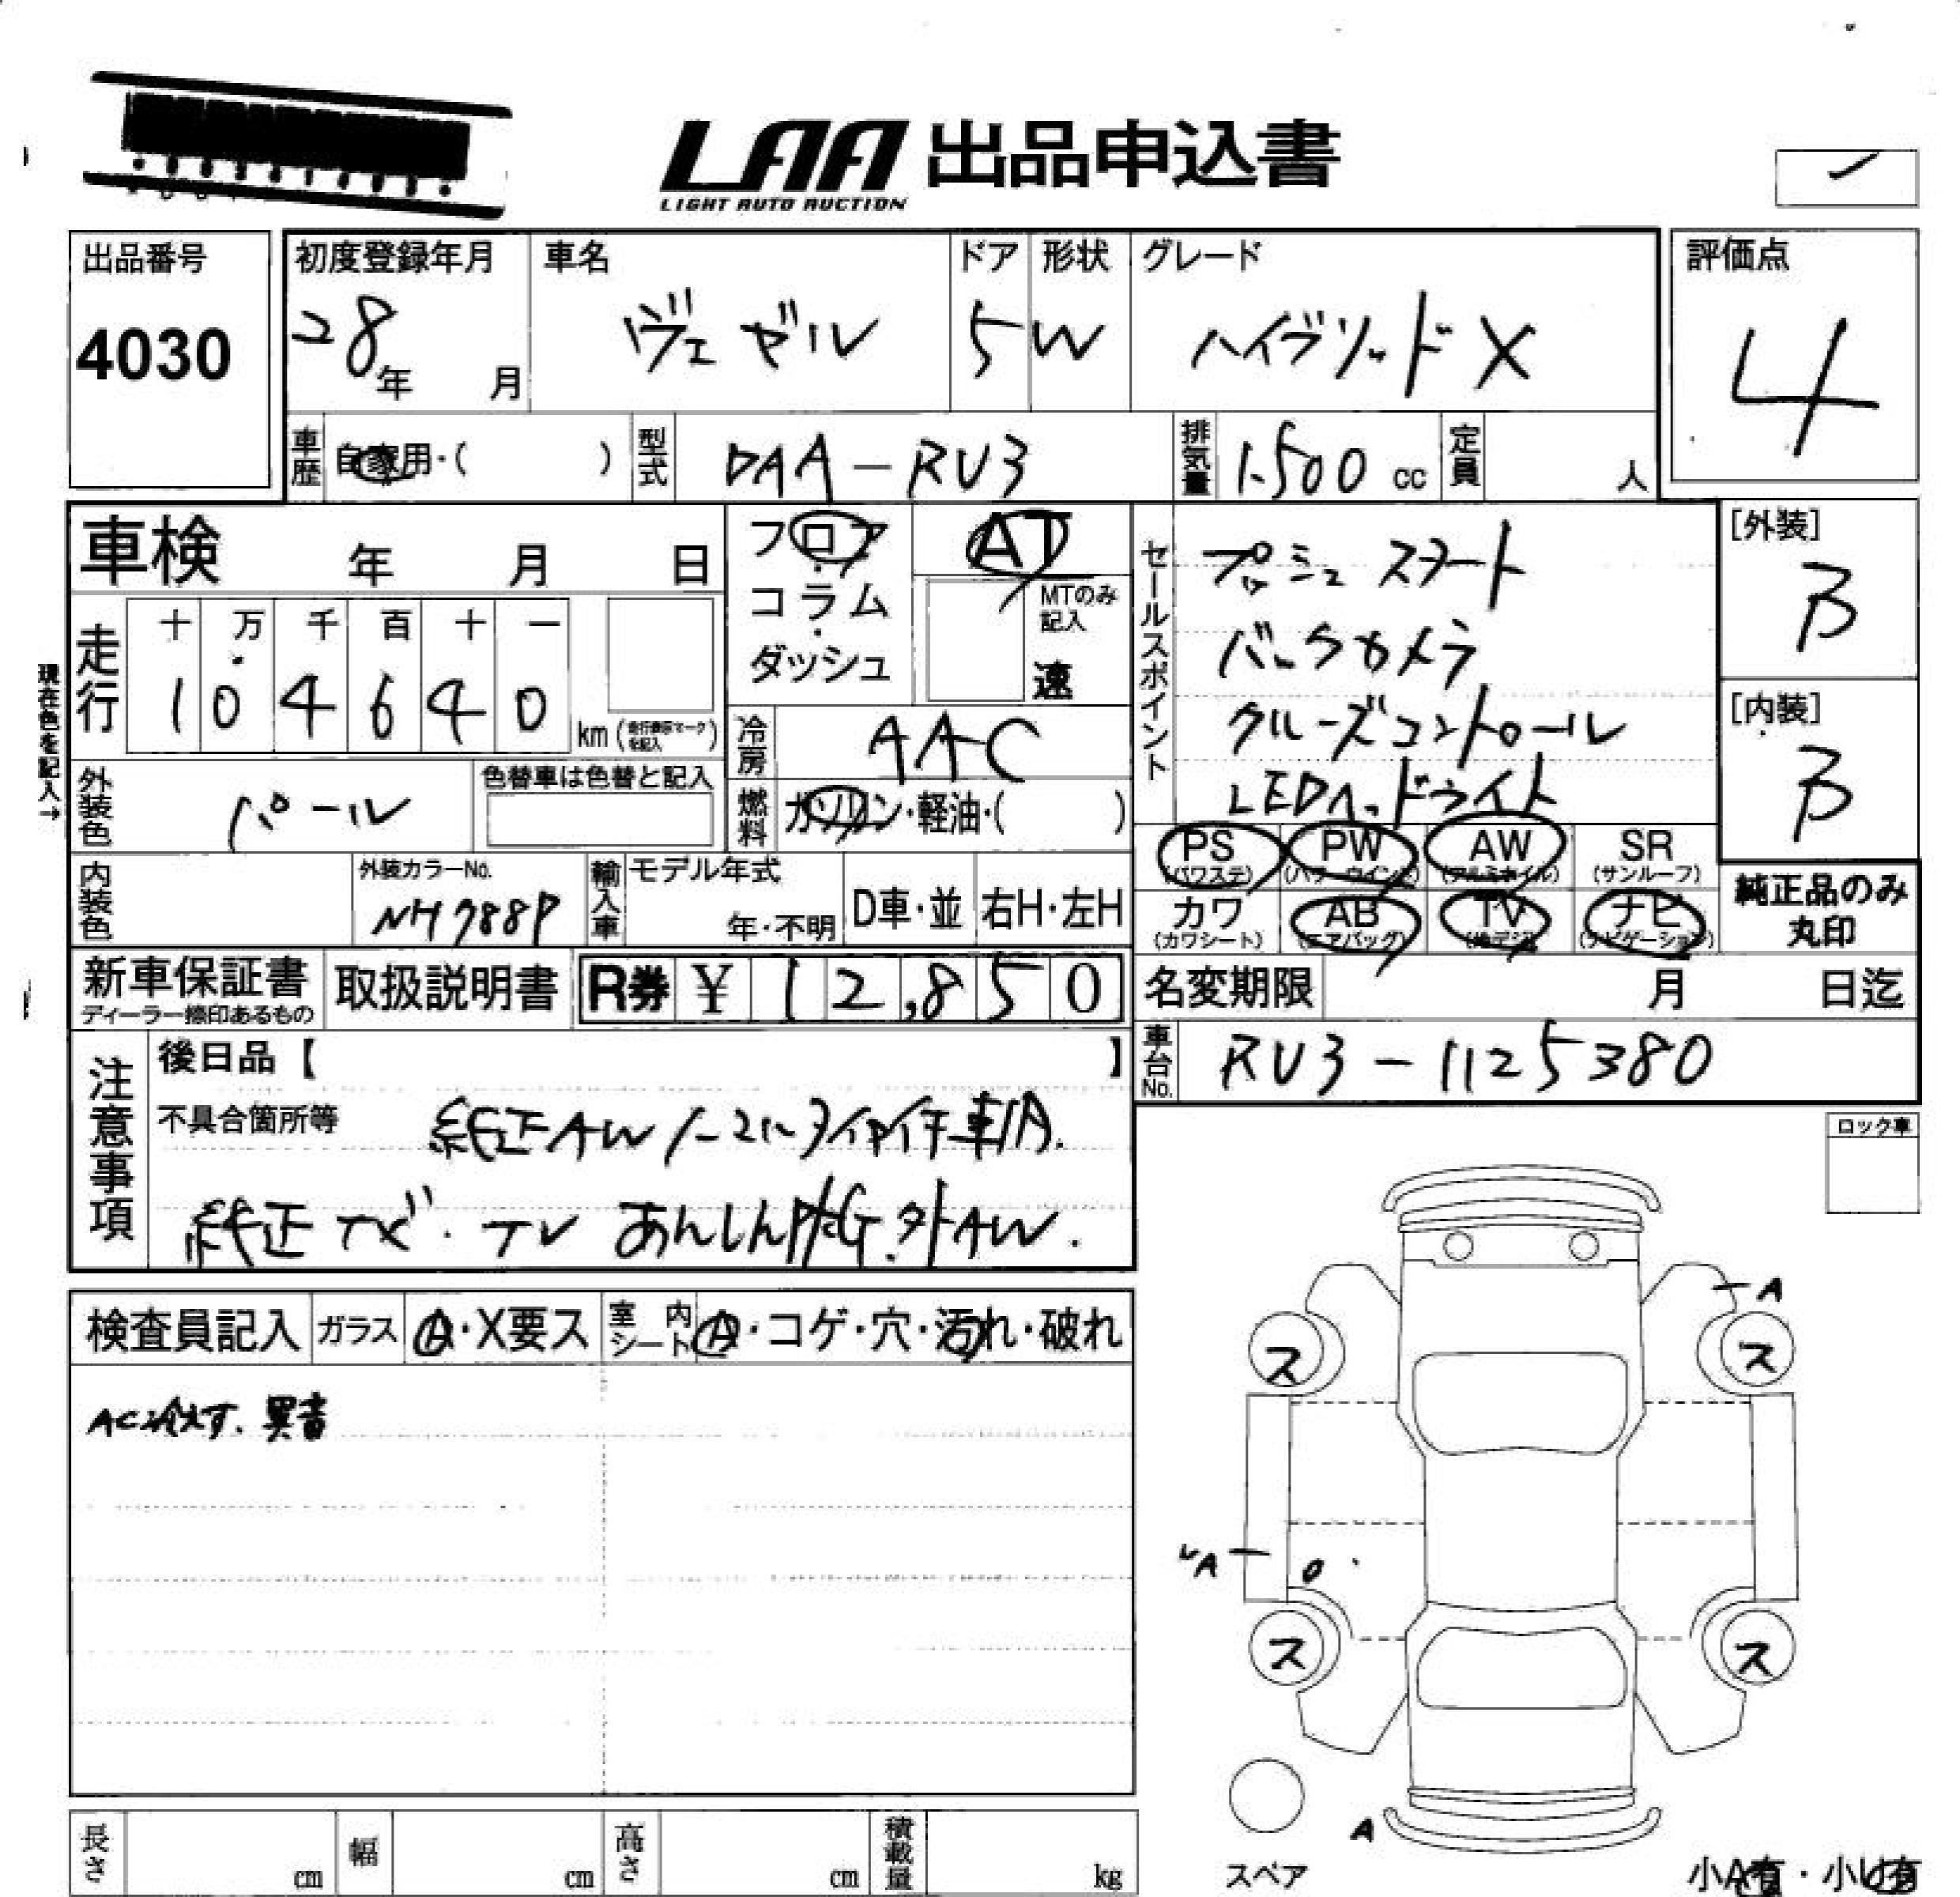 LAA 出品申込書
LIGHT AUTO AUCTION
出品番号
4030
初度登録年月
28年 月
車名
ヴェゼル
ドア
5
形状
W
グレード
ハイブリッドX
評価点
4
車歴 自家用・( )
型式 DAA-RU3
排気量 1.500 cc
定員 人
車検 年 月 日
フロア
コラム
ダッシュ
AT
MTのみ
記入
速
走行
十 万 千 百 十 一
1 0 4 6 4 0 km
現在色を記入→
冷房 AAC
燃料 ガソリン・軽油・( )
セールスポイント
プッシュスタート
バックカメラ
クルーズコントロール
LEDヘッドライト
[外装]
B
[内装]
B
外装色 パール
色替車は色替と記入
内装色
外装カラーNo.
NH788P
輸入車
モデル年式
年・不明
D車・並
右H・左H
PS (パワステ)
PW (パワーウインド)
AW (アルミホイル)
SR (サンルーフ)
カワ (カワシート)
AB (エアバッグ)
TV (地デジ)
ナビ (ナビゲーション)
純正品のみ
丸印
新車保証書
ディーラー捺印あるもの
取扱説明書
R券 ¥ 12,850
名変期限 月 日迄
車台No. RU3-1125380
注意事項
後日品【 】
不具合箇所等
純正AW ノーマルタイヤ付 車内.
純正ナビ・TV あんしんPKG.外AW.
ロック車
検査員記入
ガラス A・X要ス
室内シート A・コゲ・穴・汚れ・破れ
AC冷えず、異音
A
ス
ス
A
ス
ス
A
スペア
小A有・小U有
長さ cm
幅 cm
高さ cm
積載量 kg